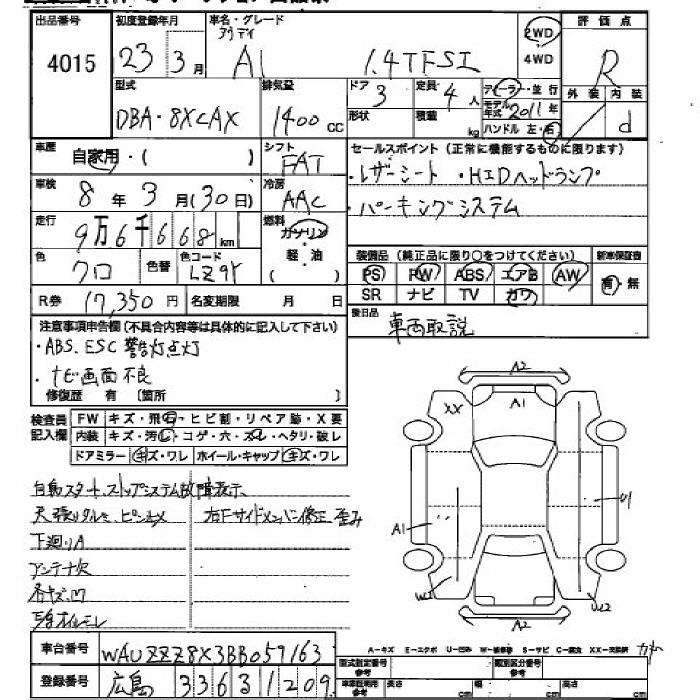 出品番号
4015
初度登録年月
23年3月
車名・グレード
アウディ
A1 1.4TFSI
2WD
4WD
評価点
R
外装 内装
d
型式
DBA・8XCAX
排気量
1400cc
ドア
3
定員
4人
形状
積載
kg
ディーラー・並行
モデル年式 2011年
ハンドル 左・右
車歴
自家用・( )
シフト
FAT
セールスポイント(正常に機能するものに限ります)
・レザーシート ・HIDヘッドランプ
・パーキングシステム
車検
8年3月(30日)
冷房
AAC
走行
9万6千668km
燃料
ガソリン
軽・油
( )
色
クロ
色替
色コード
LZ9Y
装備品(純正品に限り○をつけてください)
PS PW ABS エアB AW
SR ナビ TV カワ
新車保証書
有・無
R券 17,350円
名変期限 月 日
後日品
車両取説
注意事項申告欄(不具合内容等は具体的に記入して下さい)
・ABS、ESC警告灯点灯
・ナビ画面不良
修復歴 有〔箇所 〕
検査員記入欄
FW キズ・飛石・ヒビ割・リペア跡・X要
内装 キズ・汚し・コゲ・穴・スレ・ヘタリ・破レ
ドアミラー キズ・ワレ ホイール・キャップ キズ・ワレ
自動スタートストップシステム故障表示
天張りタルミ、ピン止メ 右Fサイドメンバー修正歪み
下廻りA
アンテナ欠
各キズ、凹
A2
XX
A1
U1
A1
W2
W2
A2
A-キズ E-エクボ U-凹み W-補修跡 S-サビ C-腐食 XX-交換済
車台番号
WAUZZZ8X3BB059163
登録番号
広島 336 3 1209
型式指定番号
参考
類別区分番号
参考
車庫証明用
参考
長さ cm
幅 cm
高さ cm